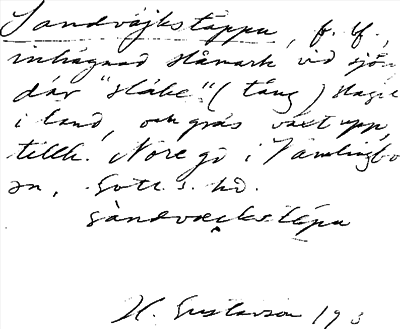 Sandväjkstäppu, f. f.,
inhägnad slåmark vid sjön
där "släke" (tång) slagit
i land, och gräs växt upp,
tillh. Nore gd i Vamlingbo
sn, Gotl. s. hd.
sàndvæikstépu
H. Gustavson 19